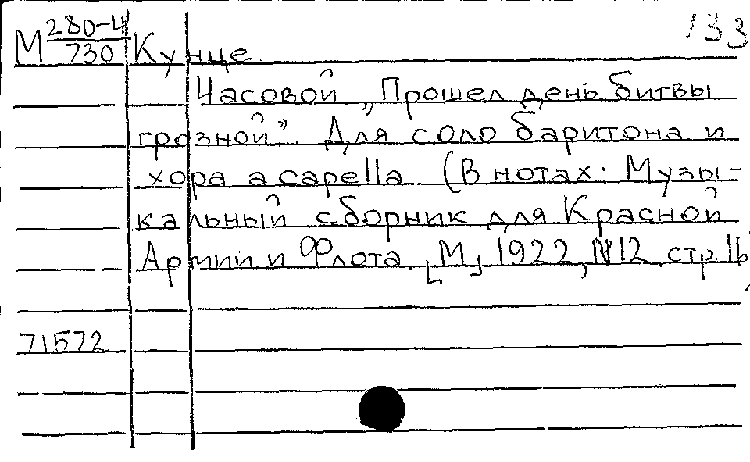 133
М 280-4/730 Кунце.
Часовой „Прошел день битвы
грозной". Для соло баритона и
хора a capella (В нотах: Музы-
кальный сборник для Красной
Армии и Флота. [М] 1922, №12 стр 16
71572